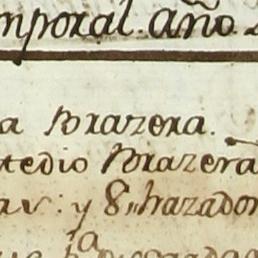 mporal. año
a Brazera.
tedio Brazera
av: y 8,, hazador